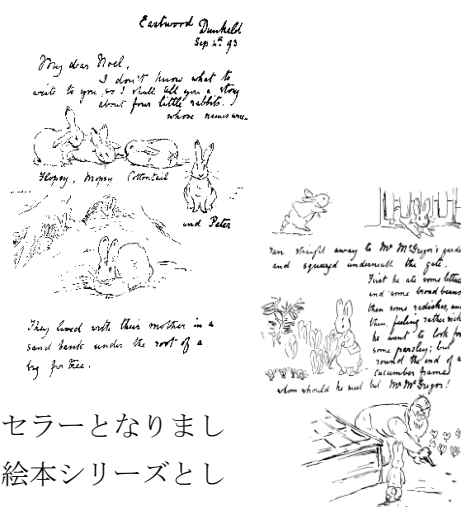 Eastwood Dunkeld
Sep 4th 93
My dear Noel,
I don't know what to
write to you, so I shall tell you a story
about four little rabbits.
whose names were
Flopsy, Mopsy Cottontail
and Peter
They lived with their mother in a
sand bank under the root of a
big fir tree.
ran straight away to Mr McGregor's garde
and squeezed underneath the gate.
First he ate some lettuce
and some broad beans
then some radishes, and
then, feeling rather sick
he went to look for
some parsley; but
round the end of a
cucumber frame
whom should he meet but Mr McGregor!
セラーとなりまし
絵本シリーズとし